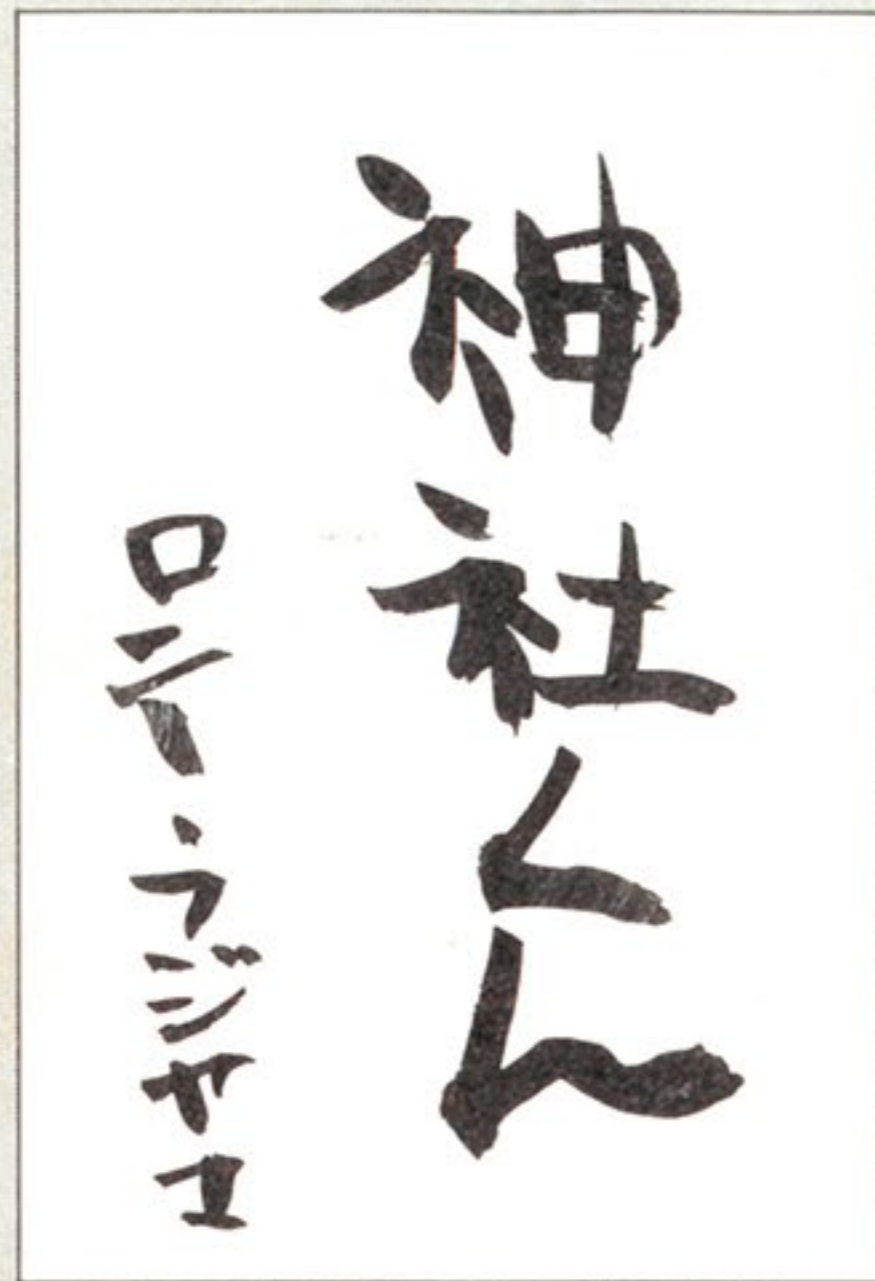 神社くん
ロニー・ラジャコ